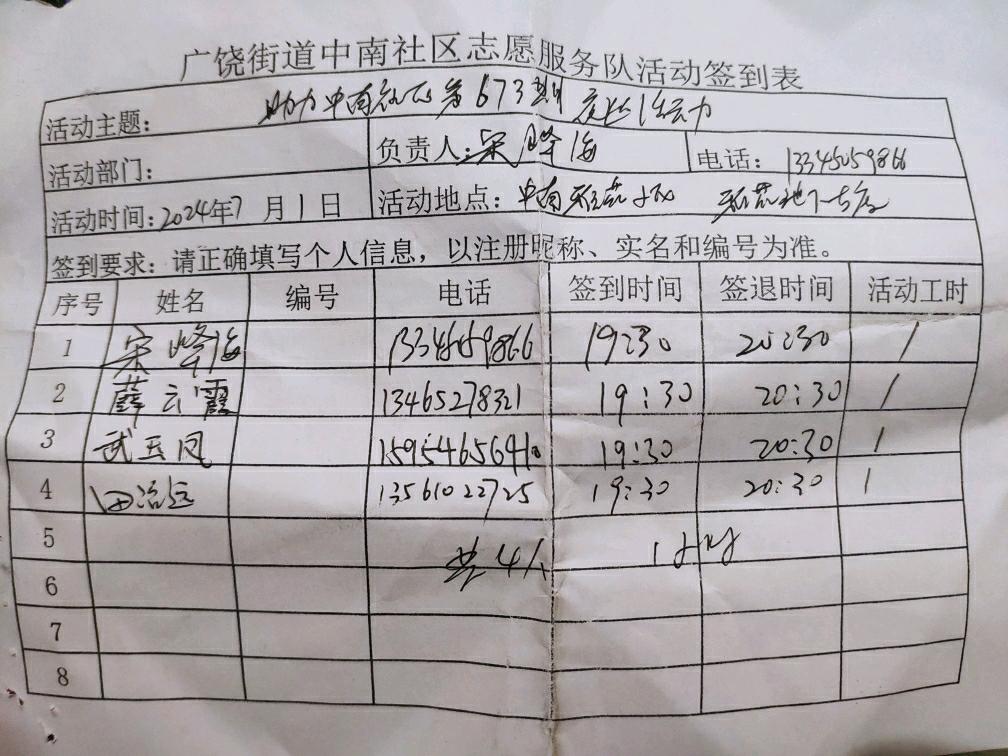 广饶街道中南社区志愿服务队活动签到表
活动主题： 助力中南社区第673期
活动部门： 负责人：宋峰海 电话：13345059866
活动时间：2024年7月1日 活动地点：中南
签到要求：请正确填写个人信息，以注册昵称、实名和编号为准。
序号 姓名 编号 电话 签到时间 签退时间 活动工时
1 宋峰海 19:30 20:30 1
2 薛云霞 13465278321 19:30 20:30 1
3 武玉凤 19:30 20:30 1
4 田治远 13561022725 19:30 20:30 1
5 共4人 1小时
6
7
8